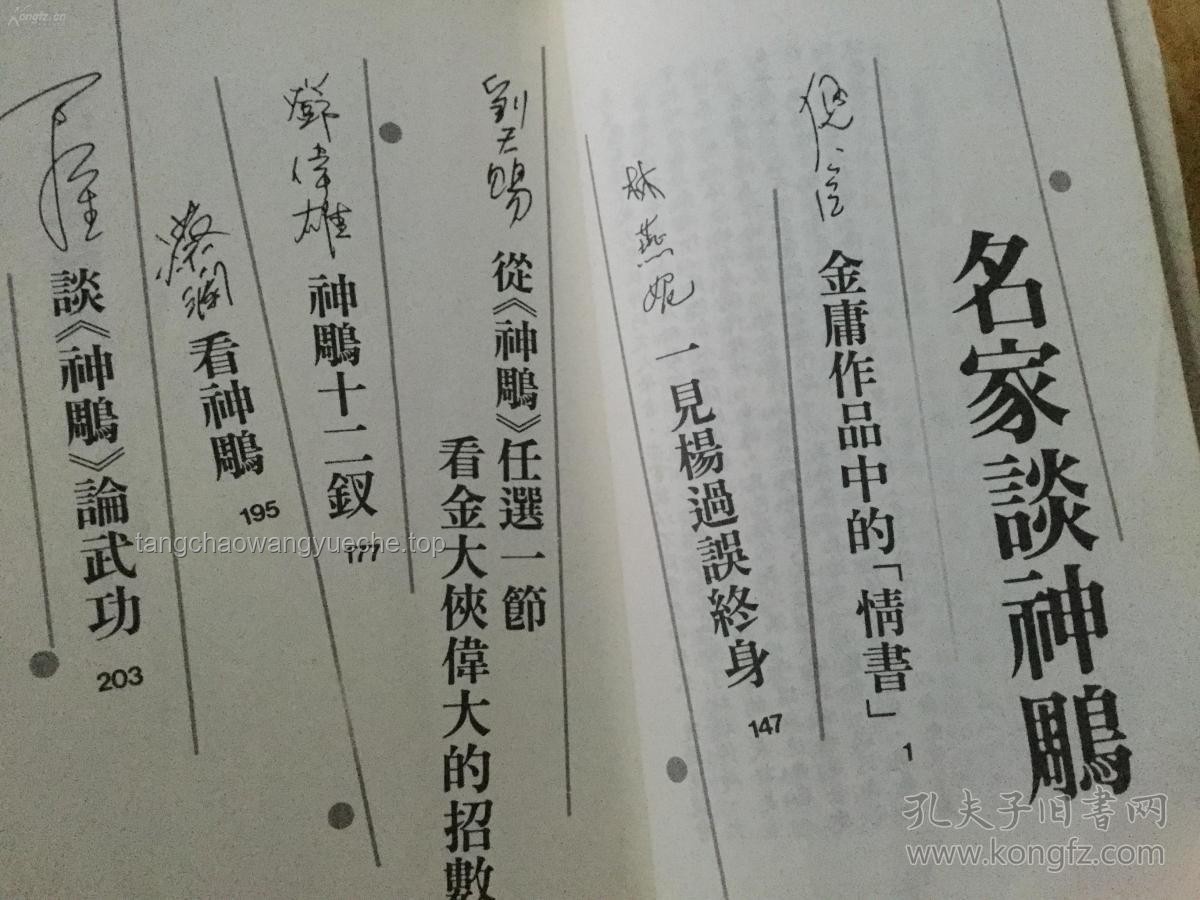 名家談神鵰
倪匡
金庸作品中的「情書」
1
林燕妮
一見楊過誤終身
147
劉天賜
從《神鵰》任選一節
看金大俠偉大的招數
鄧偉雄
神鵰十二釵
177
蔡瀾
看神鵰
195
談《神鵰》論武功
203
tangchaowangyueche.top
孔夫子旧书网
www.kongfz.com
Kongfz.cn